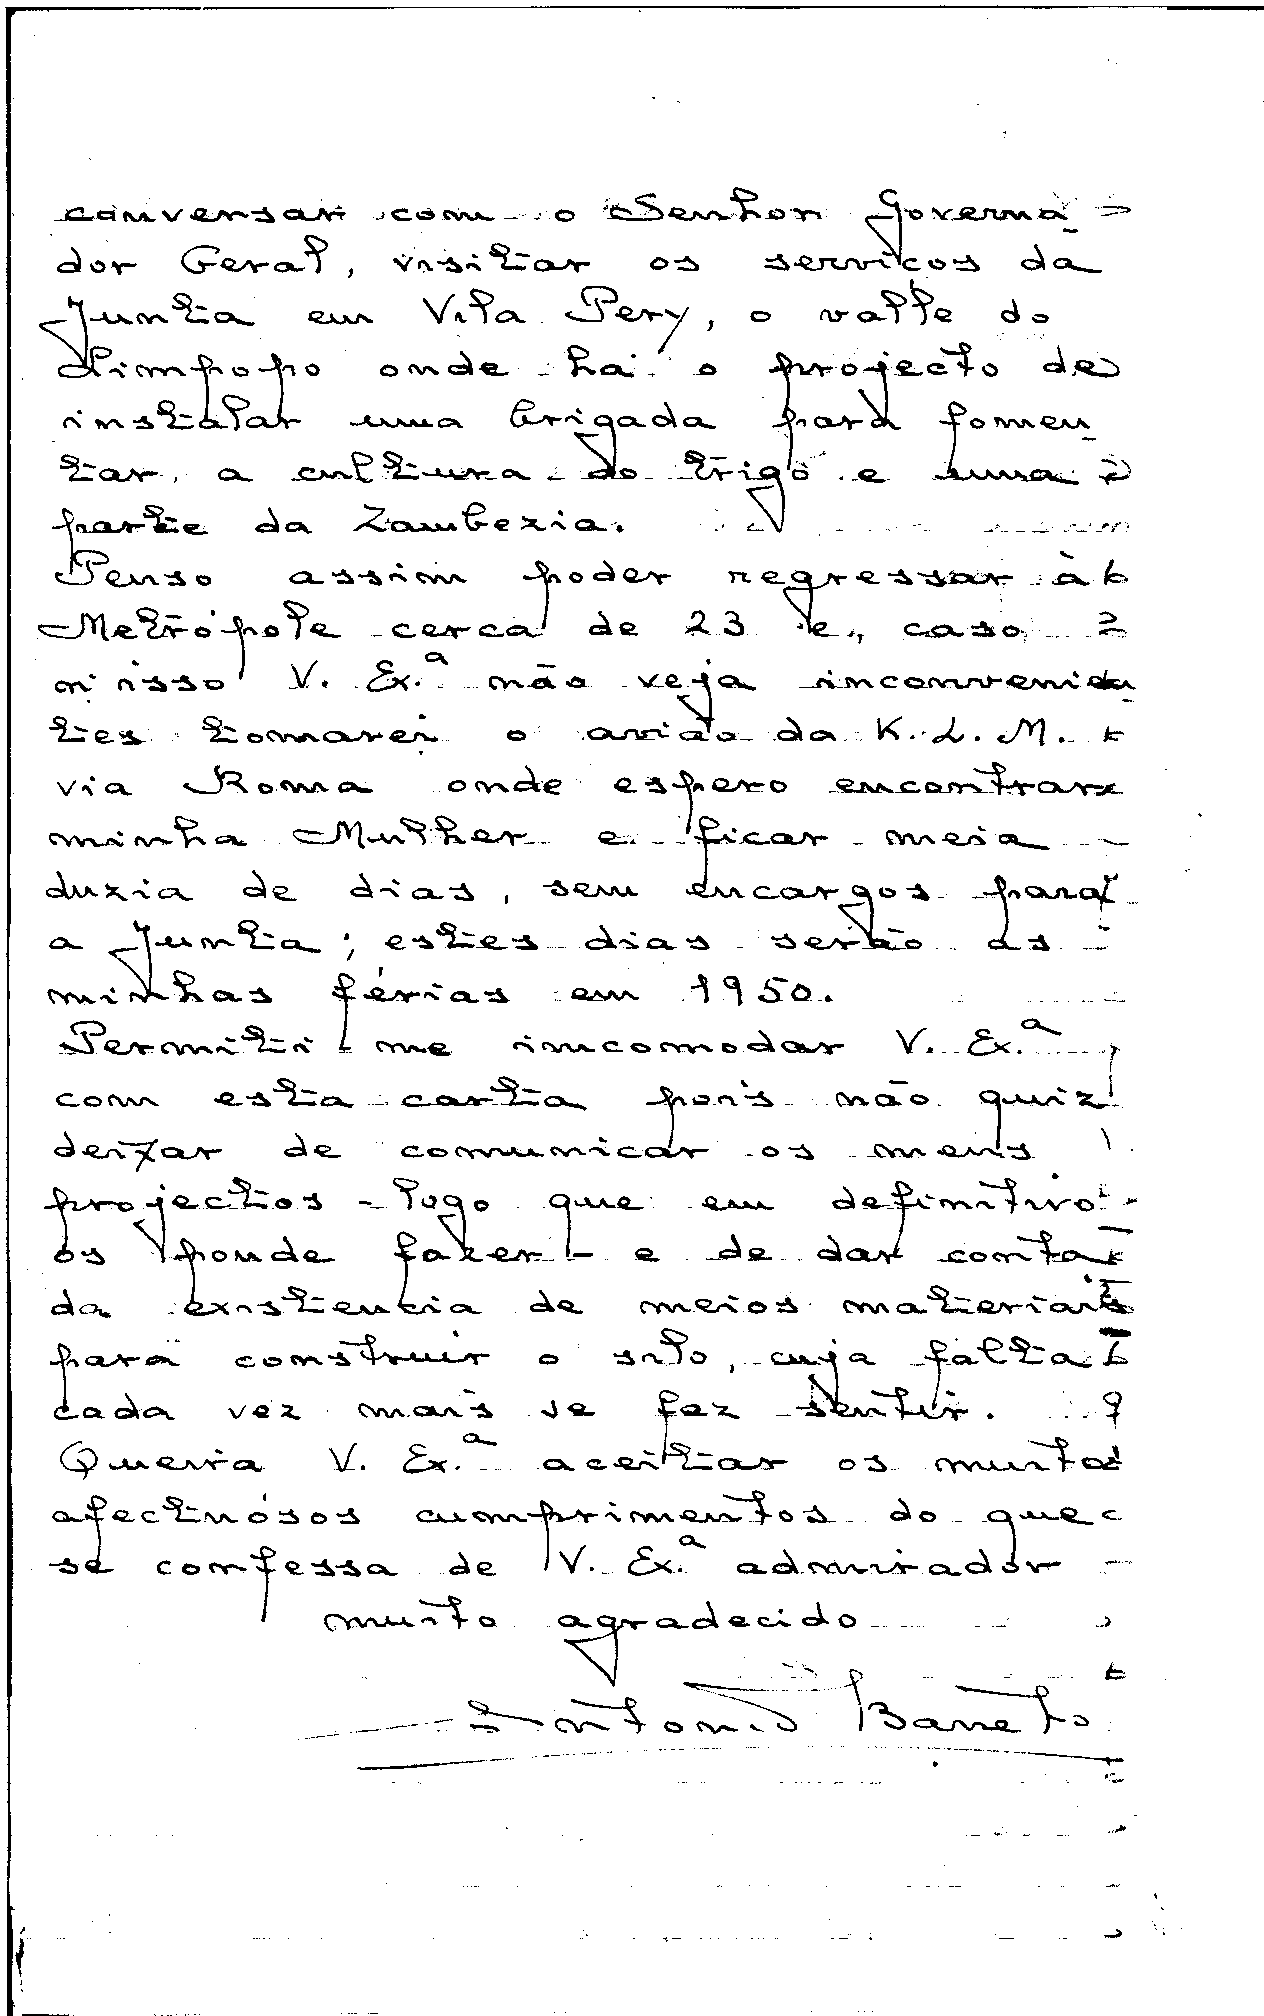 conversar com o Senhor Governa-
dor Geral, visitar os serviços da
Junta em Vila Pery, o valle do
Limpopo onde há o projecto de
instalar uma brigada para fomen-
tar a cultura do trigo e uma
parte da Zambezia.
Penso assim poder regressar à
Metrópole cerca de 23 e, caso
n'isso V. Ex.ª não veja inconvenien-
tes tomarei o avião da K. L. M.
via Roma onde espero encontrar
minha Mulher e ficar meia
duzia de dias, sem encargos para
a Junta; estes dias serão as
minhas férias em 1950.
Permiti-me incomodar V. Ex.ª
com esta carta pois não quiz
deixar de comunicar os meus
projectos - logo que em definitivo
os poude fazer - e de dar conta
da existencia de meios materiais
para construir o silo, cuja falta
cada vez mais se fez sentir.
Queira V. Ex.ª aceitar os muito
afectuósos cumprimentos do que
se confessa de V. Ex.ª admirador
muito agradecido
Antonio Barreto